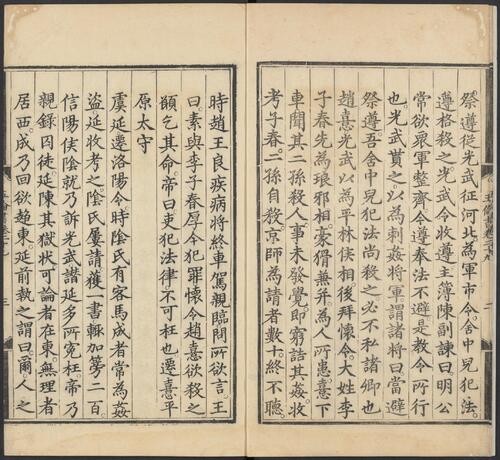 祭遵從光武征河北為軍市令舍中兒犯法
遵格殺之光武令收遵主簿陳副諫曰明公
常欲衆軍整齊令遵奉法不避是教令所行
也光武貰之以為刺姦將軍謂諸將曰當避
祭遵吾舍中兒犯法尚殺之必不私諸卿也
趙憙光武以為平林侯相後拜懷令大姓李
子春先為琅邪相豪猾兼并為人所患憙下
車聞其二孫殺人事未發覺即窮詰其姦收
考子春二孫自殺京師為請者數十終不聽
時趙王良疾病將終車駕親臨問所欲言王
曰素與李子春厚今犯罪懷令趙憙欲殺之
願乞其命帝曰吏犯法律不可枉也遷憙平
原太守
虞延遷洛陽令時陰氏有客馬成者常為姦
盜延收考之陰氏屢請獲一書輙加篣二百
信陽侯陰就乃訴光武譖延多所冤枉帝乃
親錄囚徒延陳其獄狀可論者在東無理者
居西成乃回欲趨東延前執之謂曰爾人之